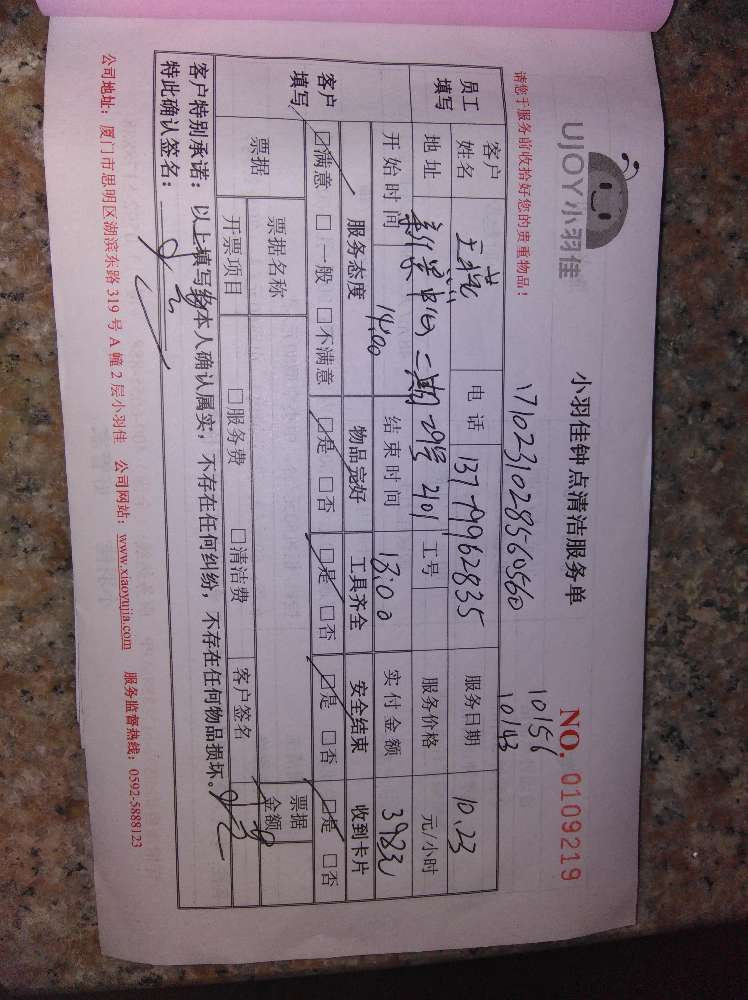 UJOY小羽佳
小羽佳钟点清洁服务单
NO. 0109219
请您于服务前收拾好您的贵重物品！
1710231028560560
10156
10143
员工填写 客户姓名 电话 13799962835 服务日期 10.23
地址 二期 29号 2101 工号 服务价格 元/小时
开始时间 14:00 结束时间 18:00 实付金额 398元
客户填写 服务态度 物品完好 工具齐全 安全结束 收到卡片
☑满意 □一般 □不满意 ☑是 □否 ☑是 □否 ☑是 □否 ☑是 □否
票据 票据名称 票据金额
开票项目 □服务费 □清洁费 客户签名
客户特别承诺：以上填写经本人确认属实，不存在任何纠纷，不存在任何物品损坏。
特此确认签名：
公司地址：厦门市思明区湖滨东路319号A幢2层小羽佳 公司网站：www.xiaoyujia.com 服务监督热线：0592-5888123